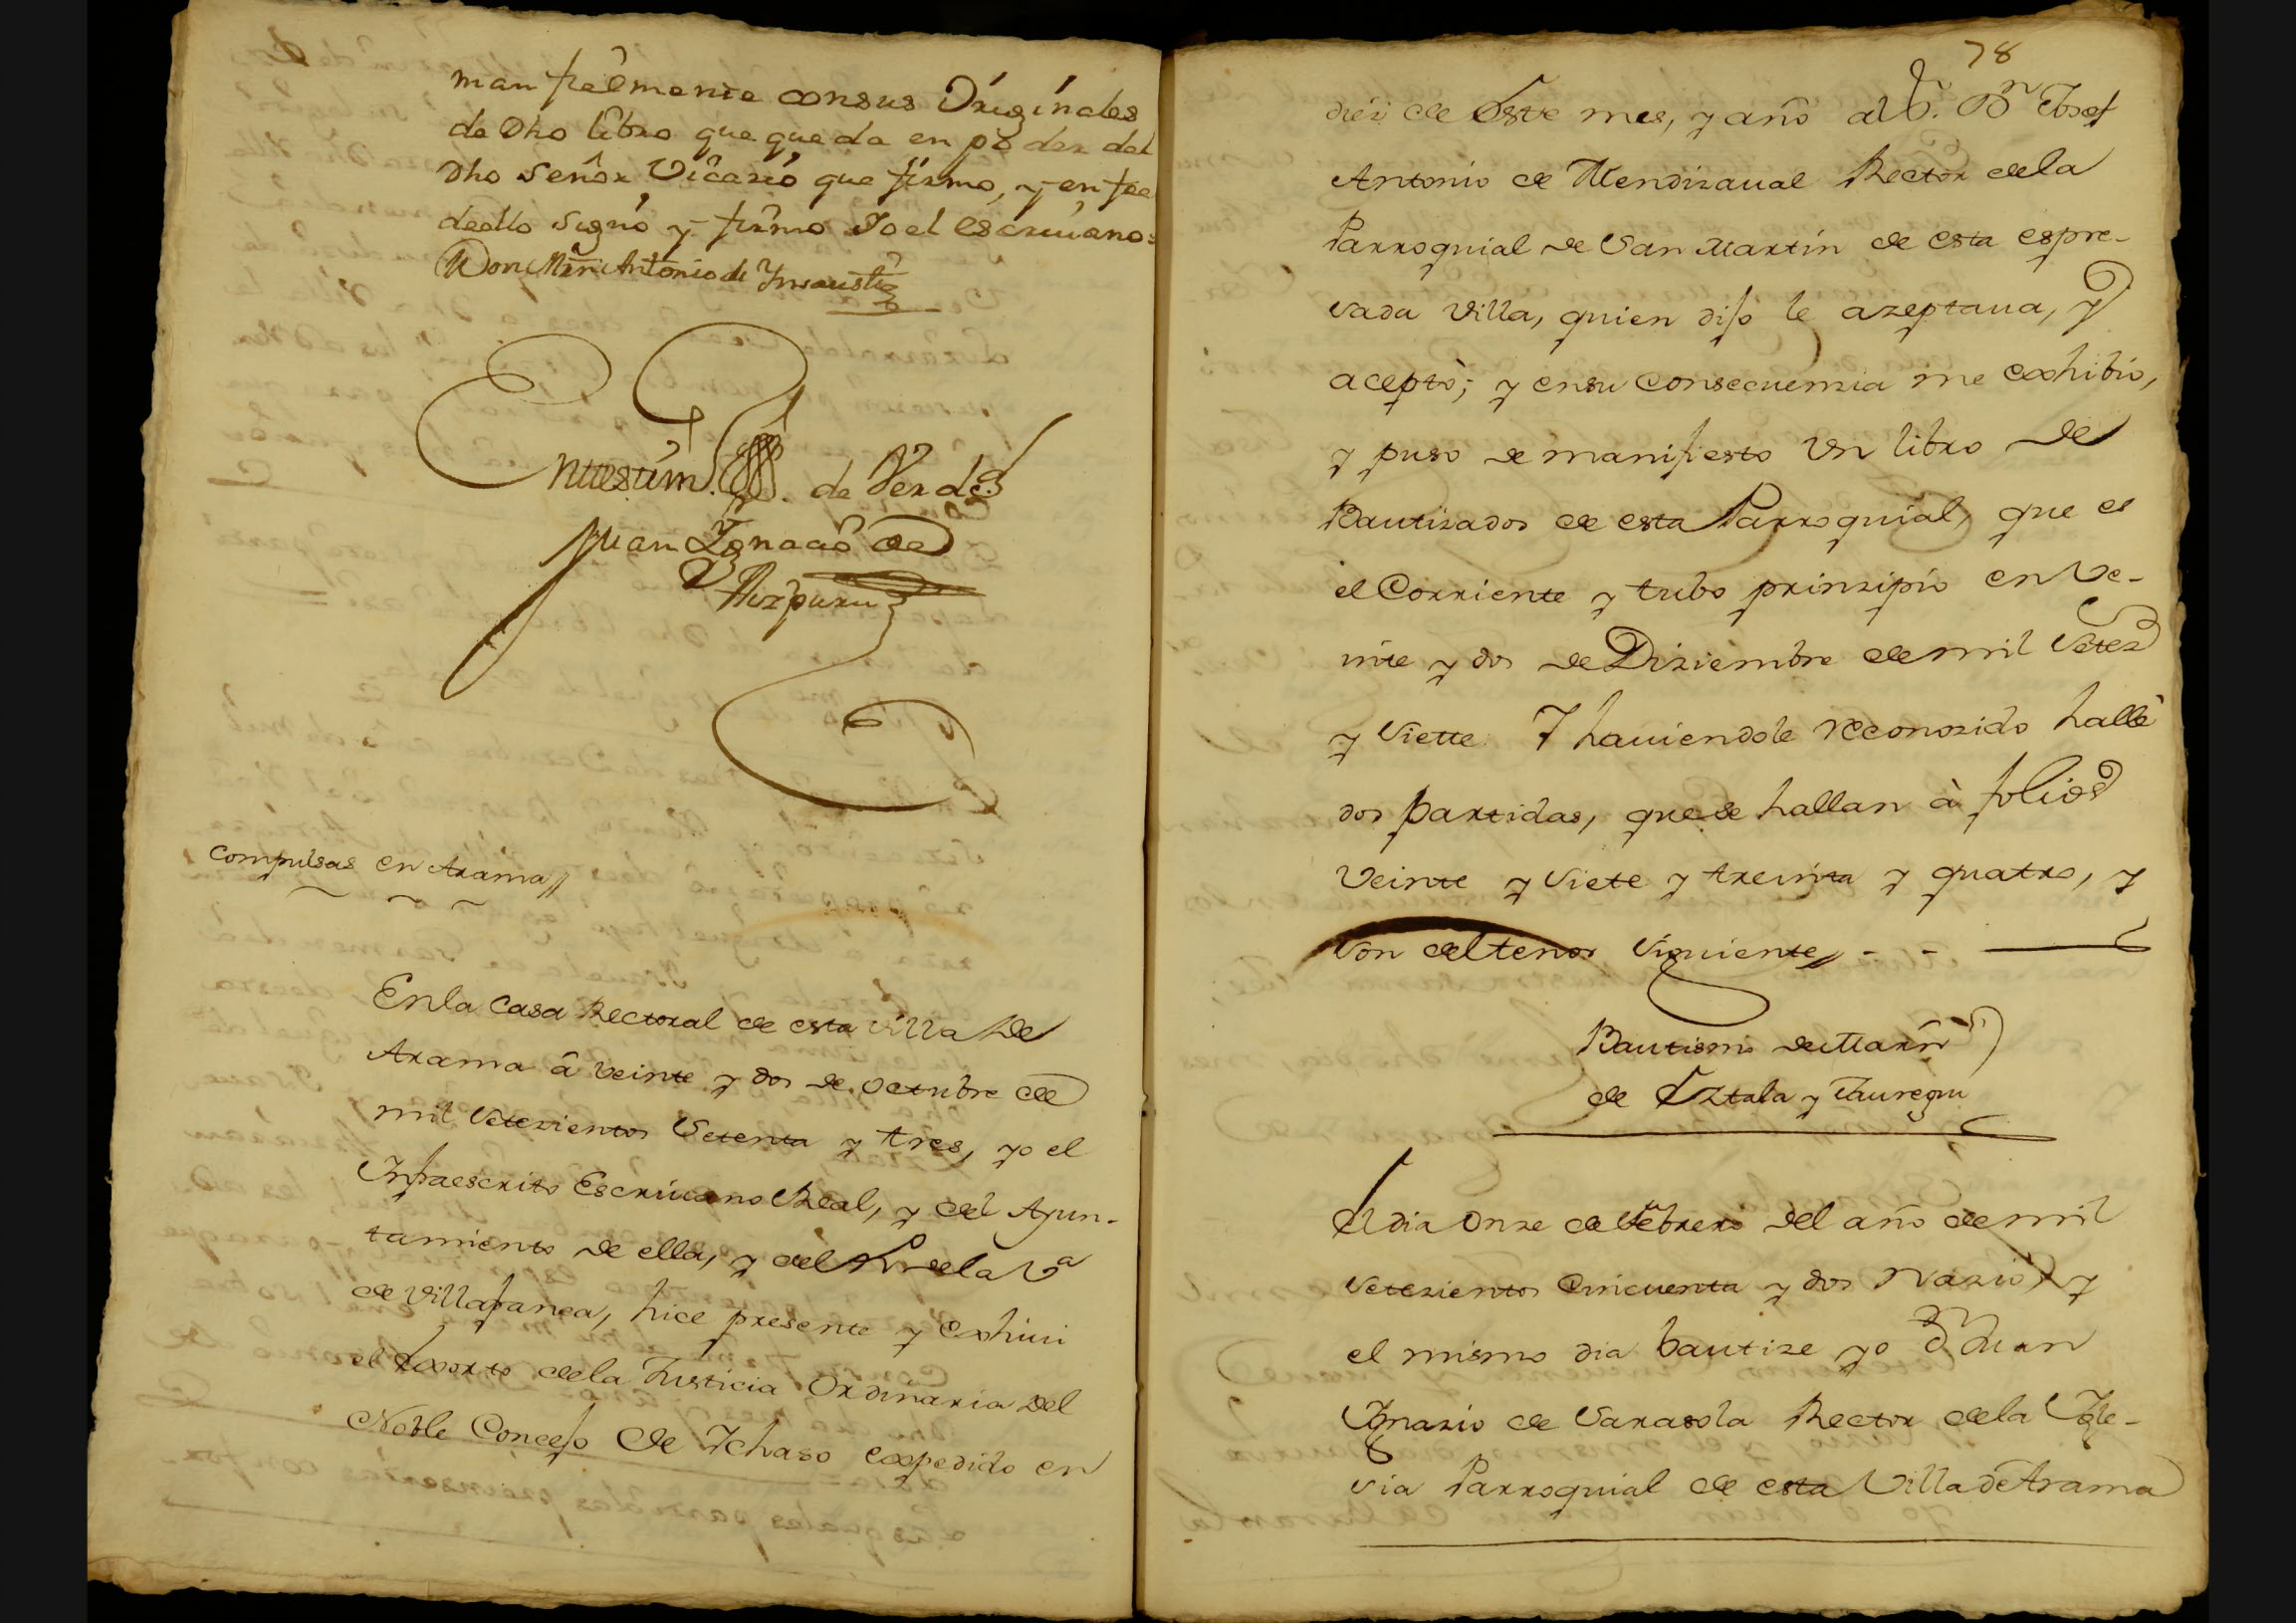 man fielmente consus Originales
de Dho libro que queda en poder del
Dho Señor Vicario que firmo, y en fee
deello signo y firmo Yo el escriuano:
Don Mrn Antonio de Ynsausti
En testim.º de Verdad
Juan Ygnacio de
Aizpuru
Compulsas en Arama
En la Casa Rectoral de esta villa de
Arama â veinte y dos de octubre de
mil Setezientos Setenta y tres, yo el
Infraescrito Escriuano Real, y del Ayun-
tamiento de ella, y del Nº dela Vª
de Villafranca, hice presente y exhiui
el Exorto dela Justicia Ordinaria del
Noble Concejo de Ichaso expedido en
78
diez de este mes, y año al Sr. Dn Josef
Antonio de Mendizaual Rector dela
Parroquial de San Martin de esta espre-
sada villa, quien dijo le azeptaua, y
aceptò; y ensu Consecuenzia me exhibio,
y puso de manifiesto Un libro de
Bautizados de esta Parroquial, que es
el Corriente y tubo prinzipio en Ve-
inte y dos de Diziembre de mil Setezs
y Siette. Y hauiendole reconozido hallè
dos partidas, quese hallan à folios
Veinte y Siete y treinta y quatro, y
Son del tenor Siguiente
Bautismo de Marn
de Eztala y Jauregui
El dia Onze de febrero del año de mil
Setezientos Cincuenta y dos Nazió, y
el mismo dia bautize yo Dn Juan
Ignazio de Sarasola Rector dela Igle-
sia Parroquial de esta Villa de Arama